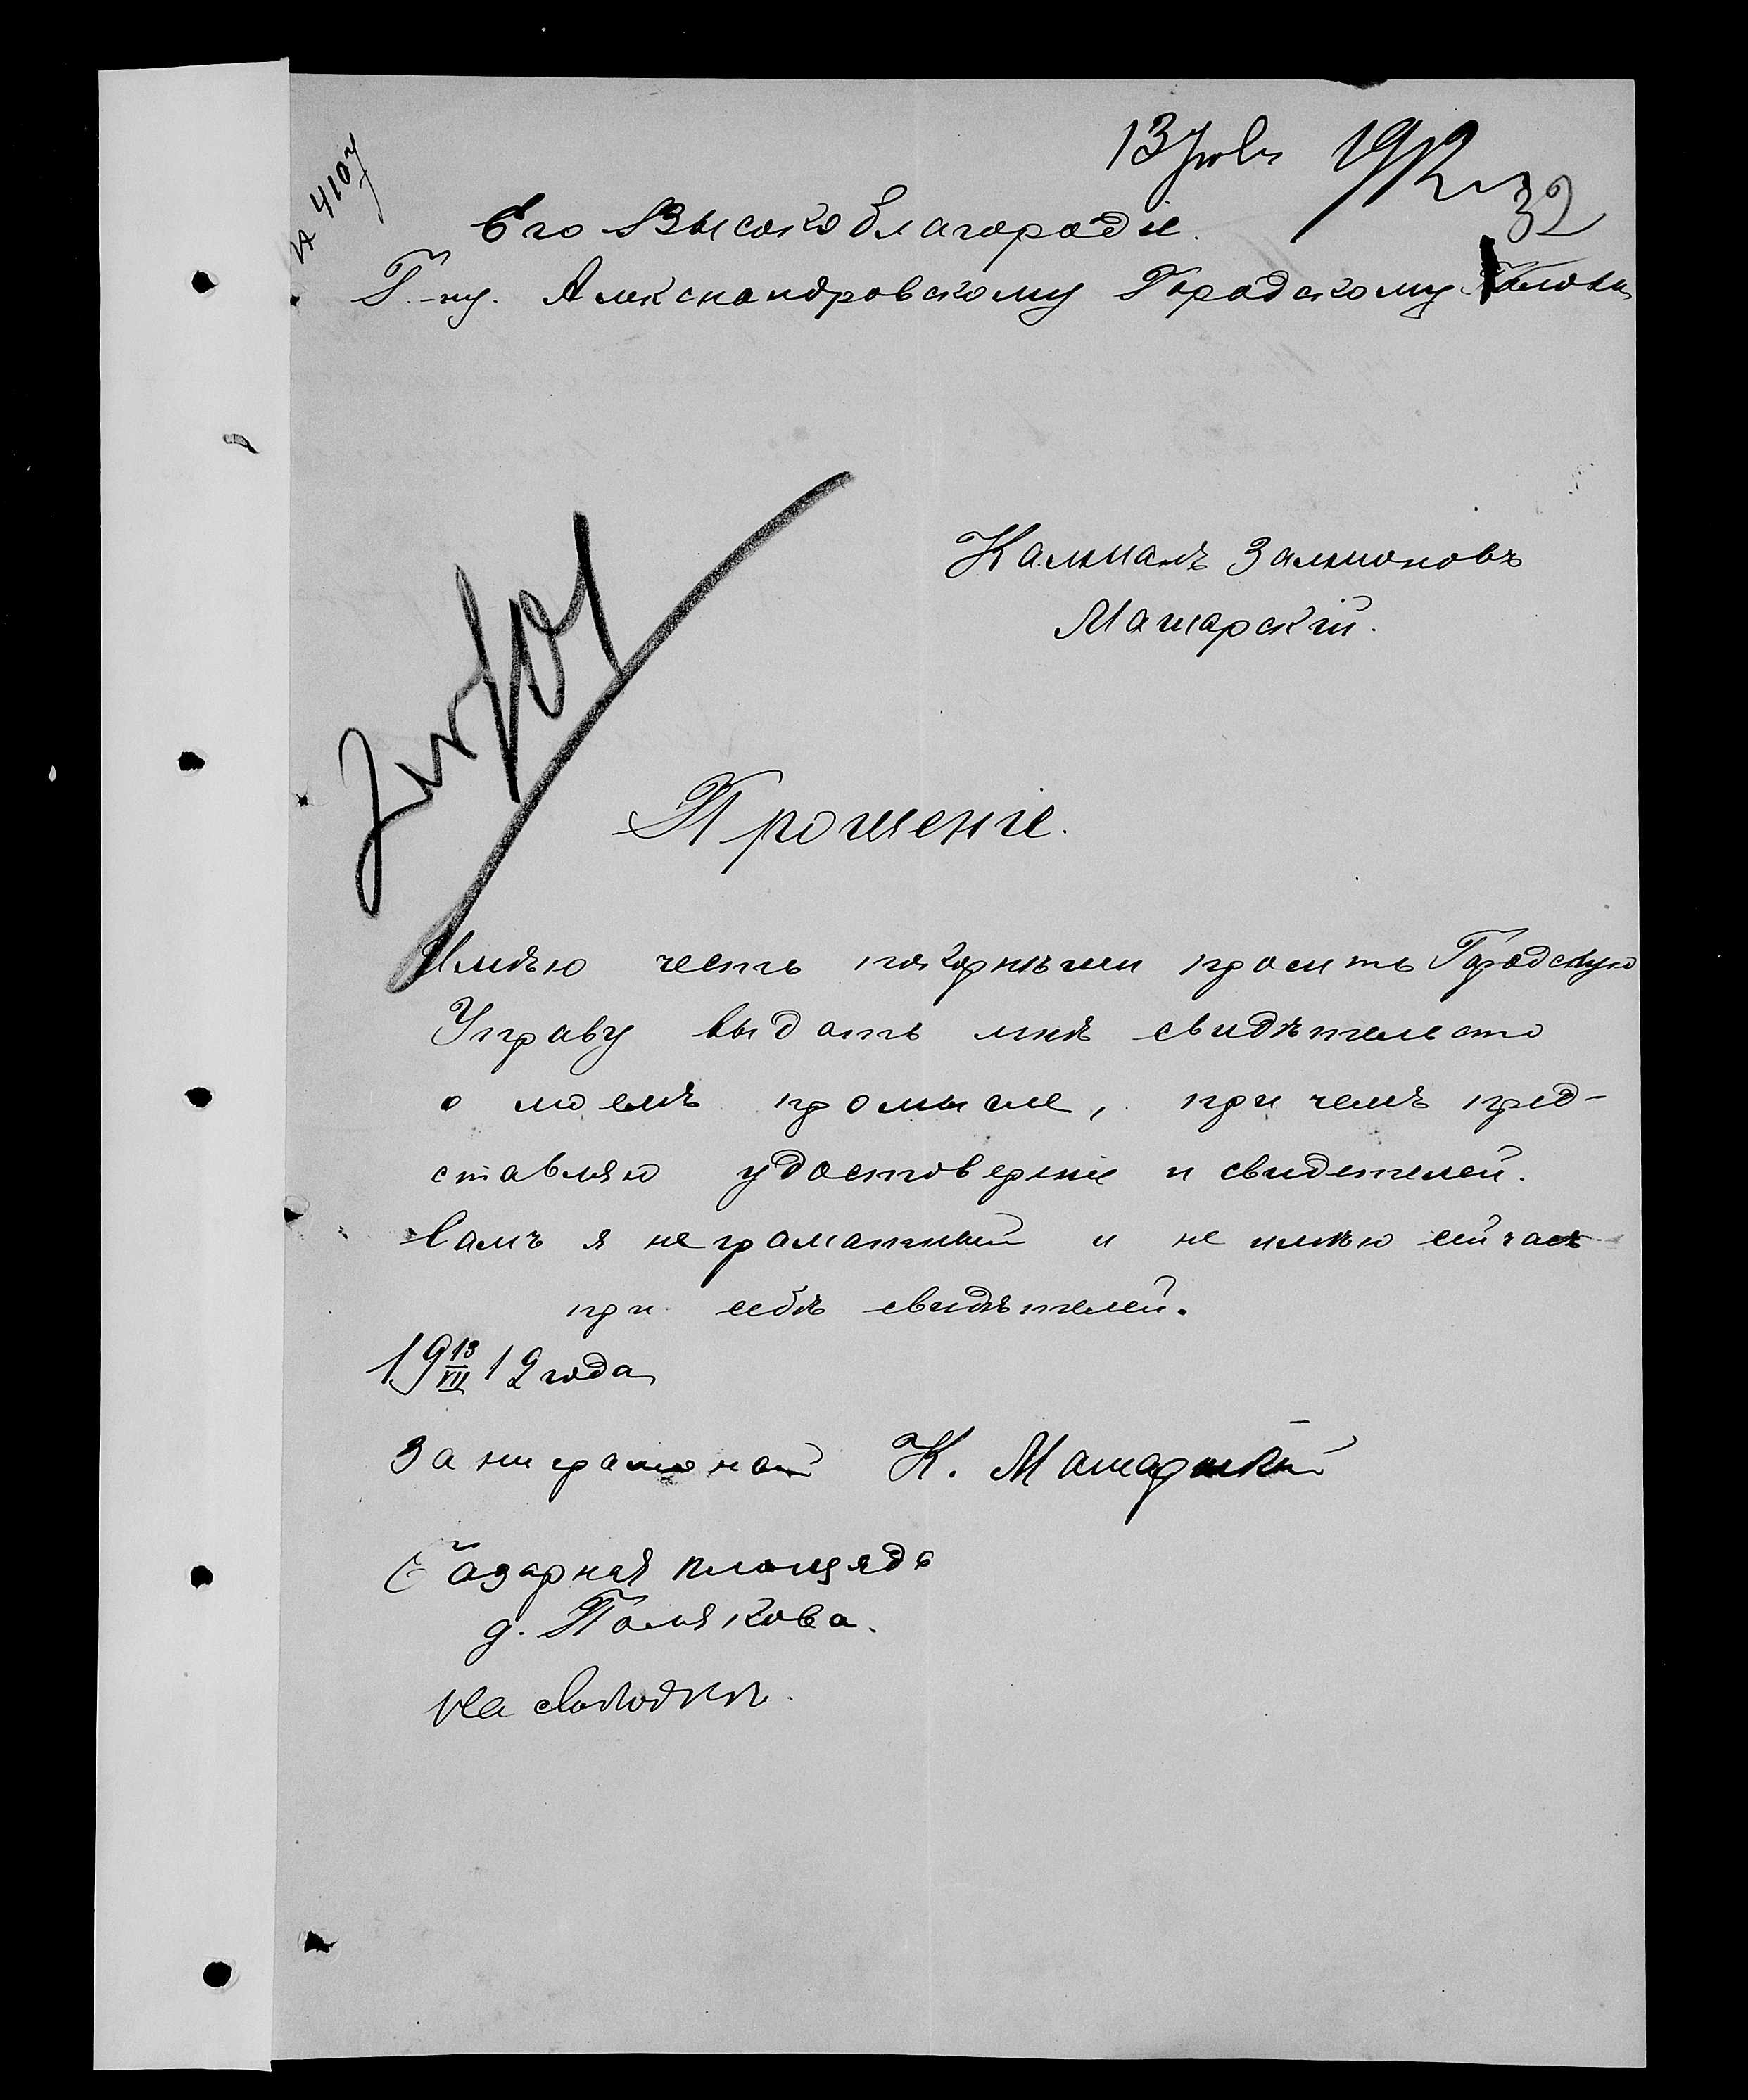 13 Іюля 1912
32
№ 4107
Его Высокоблагородіе.
Г.-ну. Александровскому Городскому Голова
Калманъ Залмоновъ
Машарскій.
Прошеніе.
Имѣю честь покорнѣши просить Городскую
Управу выдать мнѣ свидѣтельсто
о моемъ промысле, при чемъ пред-
ставляю удостоверение и свидетелей.
Самъ я неграматный и не имѣю сийчасъ
при себѣ свидѣтелей.
19 13/VII 12 года
За ниграмонай К. Машарский
Базарная площядь
д. Полякова.